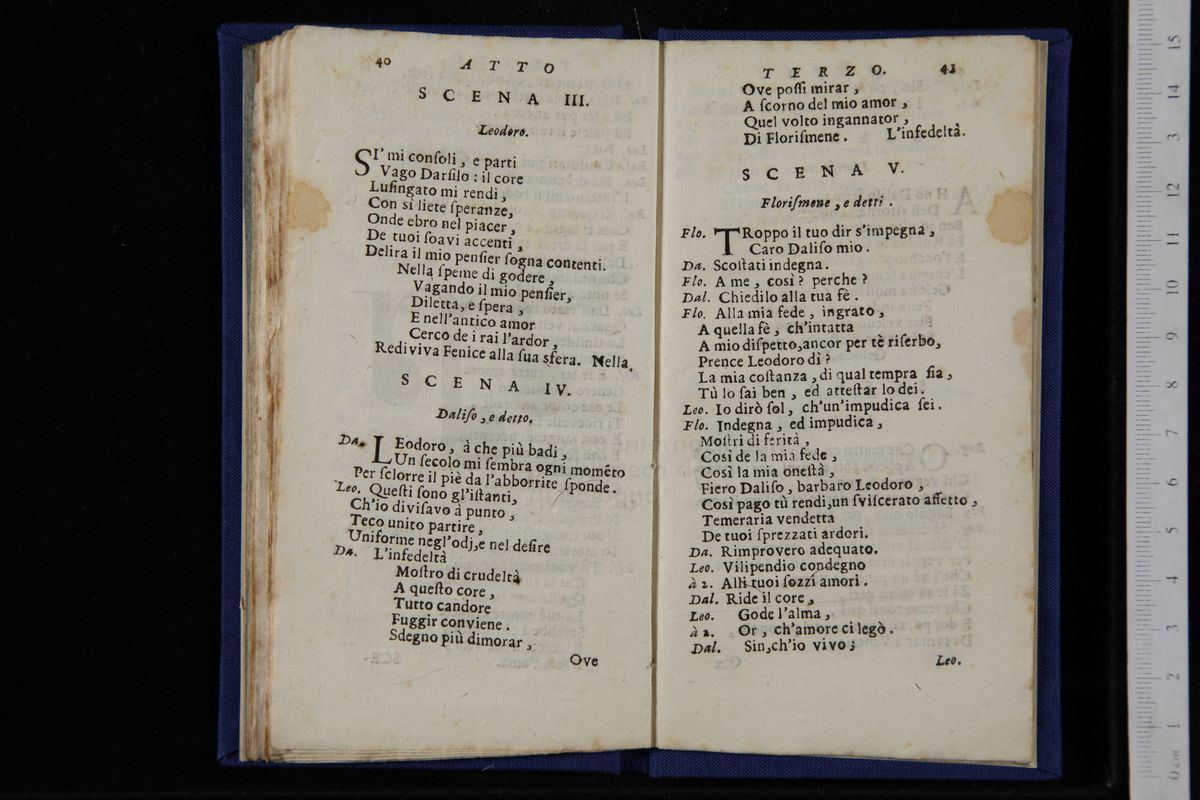 40 ATTO
SCENA III.
Leodoro.
SI' mi conſoli, e parti
Vago Darſilo : il core
Luſingato mi rendi,
Con sì liete ſperanze,
Onde ebro nel piacer,
De tuoi ſoavi accenti,
Delira il mio penſier ſogna contenti.
Nella ſpeme di godere,
Vagando il mio penſier,
Diletta, e ſpera,
E nell'antico amor
Cerco de i rai l'ardor,
Rediviva Fenice alla ſua sfera. Nella.
SCENA IV.
Daliſo, e detto.
Da. LEodoro, à che più badi,
Un ſecolo mi ſembra ogni momẽto
Per ſclorre il piè da l'abborrite ſponde.
Leo. Queſti ſono gl'iſtanti,
Ch'io diviſavo à punto,
Teco unito partire,
Uniforme negl'odj,e nel deſire
Da. L'infedeltà
Moſtro di crudeltà
A queſto core,
Tutto candore
Fuggir conviene.
Sdegno più dimorar,
Ove
TERZO. 41
Ove poſſi mirar,
A ſcorno del mio amor,
Quel volto ingannator,
Di Floriſmene. L'infedeltà.
SCENA V.
Floriſmene, e detti.
Flo. TRoppo il tuo dir s'impegna,
Caro Daliſo mio.
Da. Scoſtati indegna.
Flo. A me, così? perche?
Dal. Chiedilo alla tua fè.
Flo. Alla mia fede, ingrato,
A quella fè, ch'intatta
A mio diſpetto,ancor per tè riſerbo,
Prence Leodoro dì?
La mia coſtanza, di qual tempra ſia,
Tù lo ſai ben, ed atteſtar lo dei.
Leo. Io dirò ſol, ch'un'impudica ſei.
Flo. Indegna, ed impudica,
Moſtri di ferità,
Così de la mia fede,
Così la mia oneſtà,
Fiero Daliſo, barbaro Leodoro,
Così pago tù rendi,un ſviſcerato affetto,
Temeraria vendetta
De tuoi ſprezzati ardori.
Da. Rimprovero adequato.
Leo. Vilipendio condegno
à 2. Alli tuoi ſozzi amori.
Dal. Ride il core,
Leo. Gode l'alma,
à 2. Or, ch'amore ci legò.
Dal. Sin,ch'io vivo;
Leo.